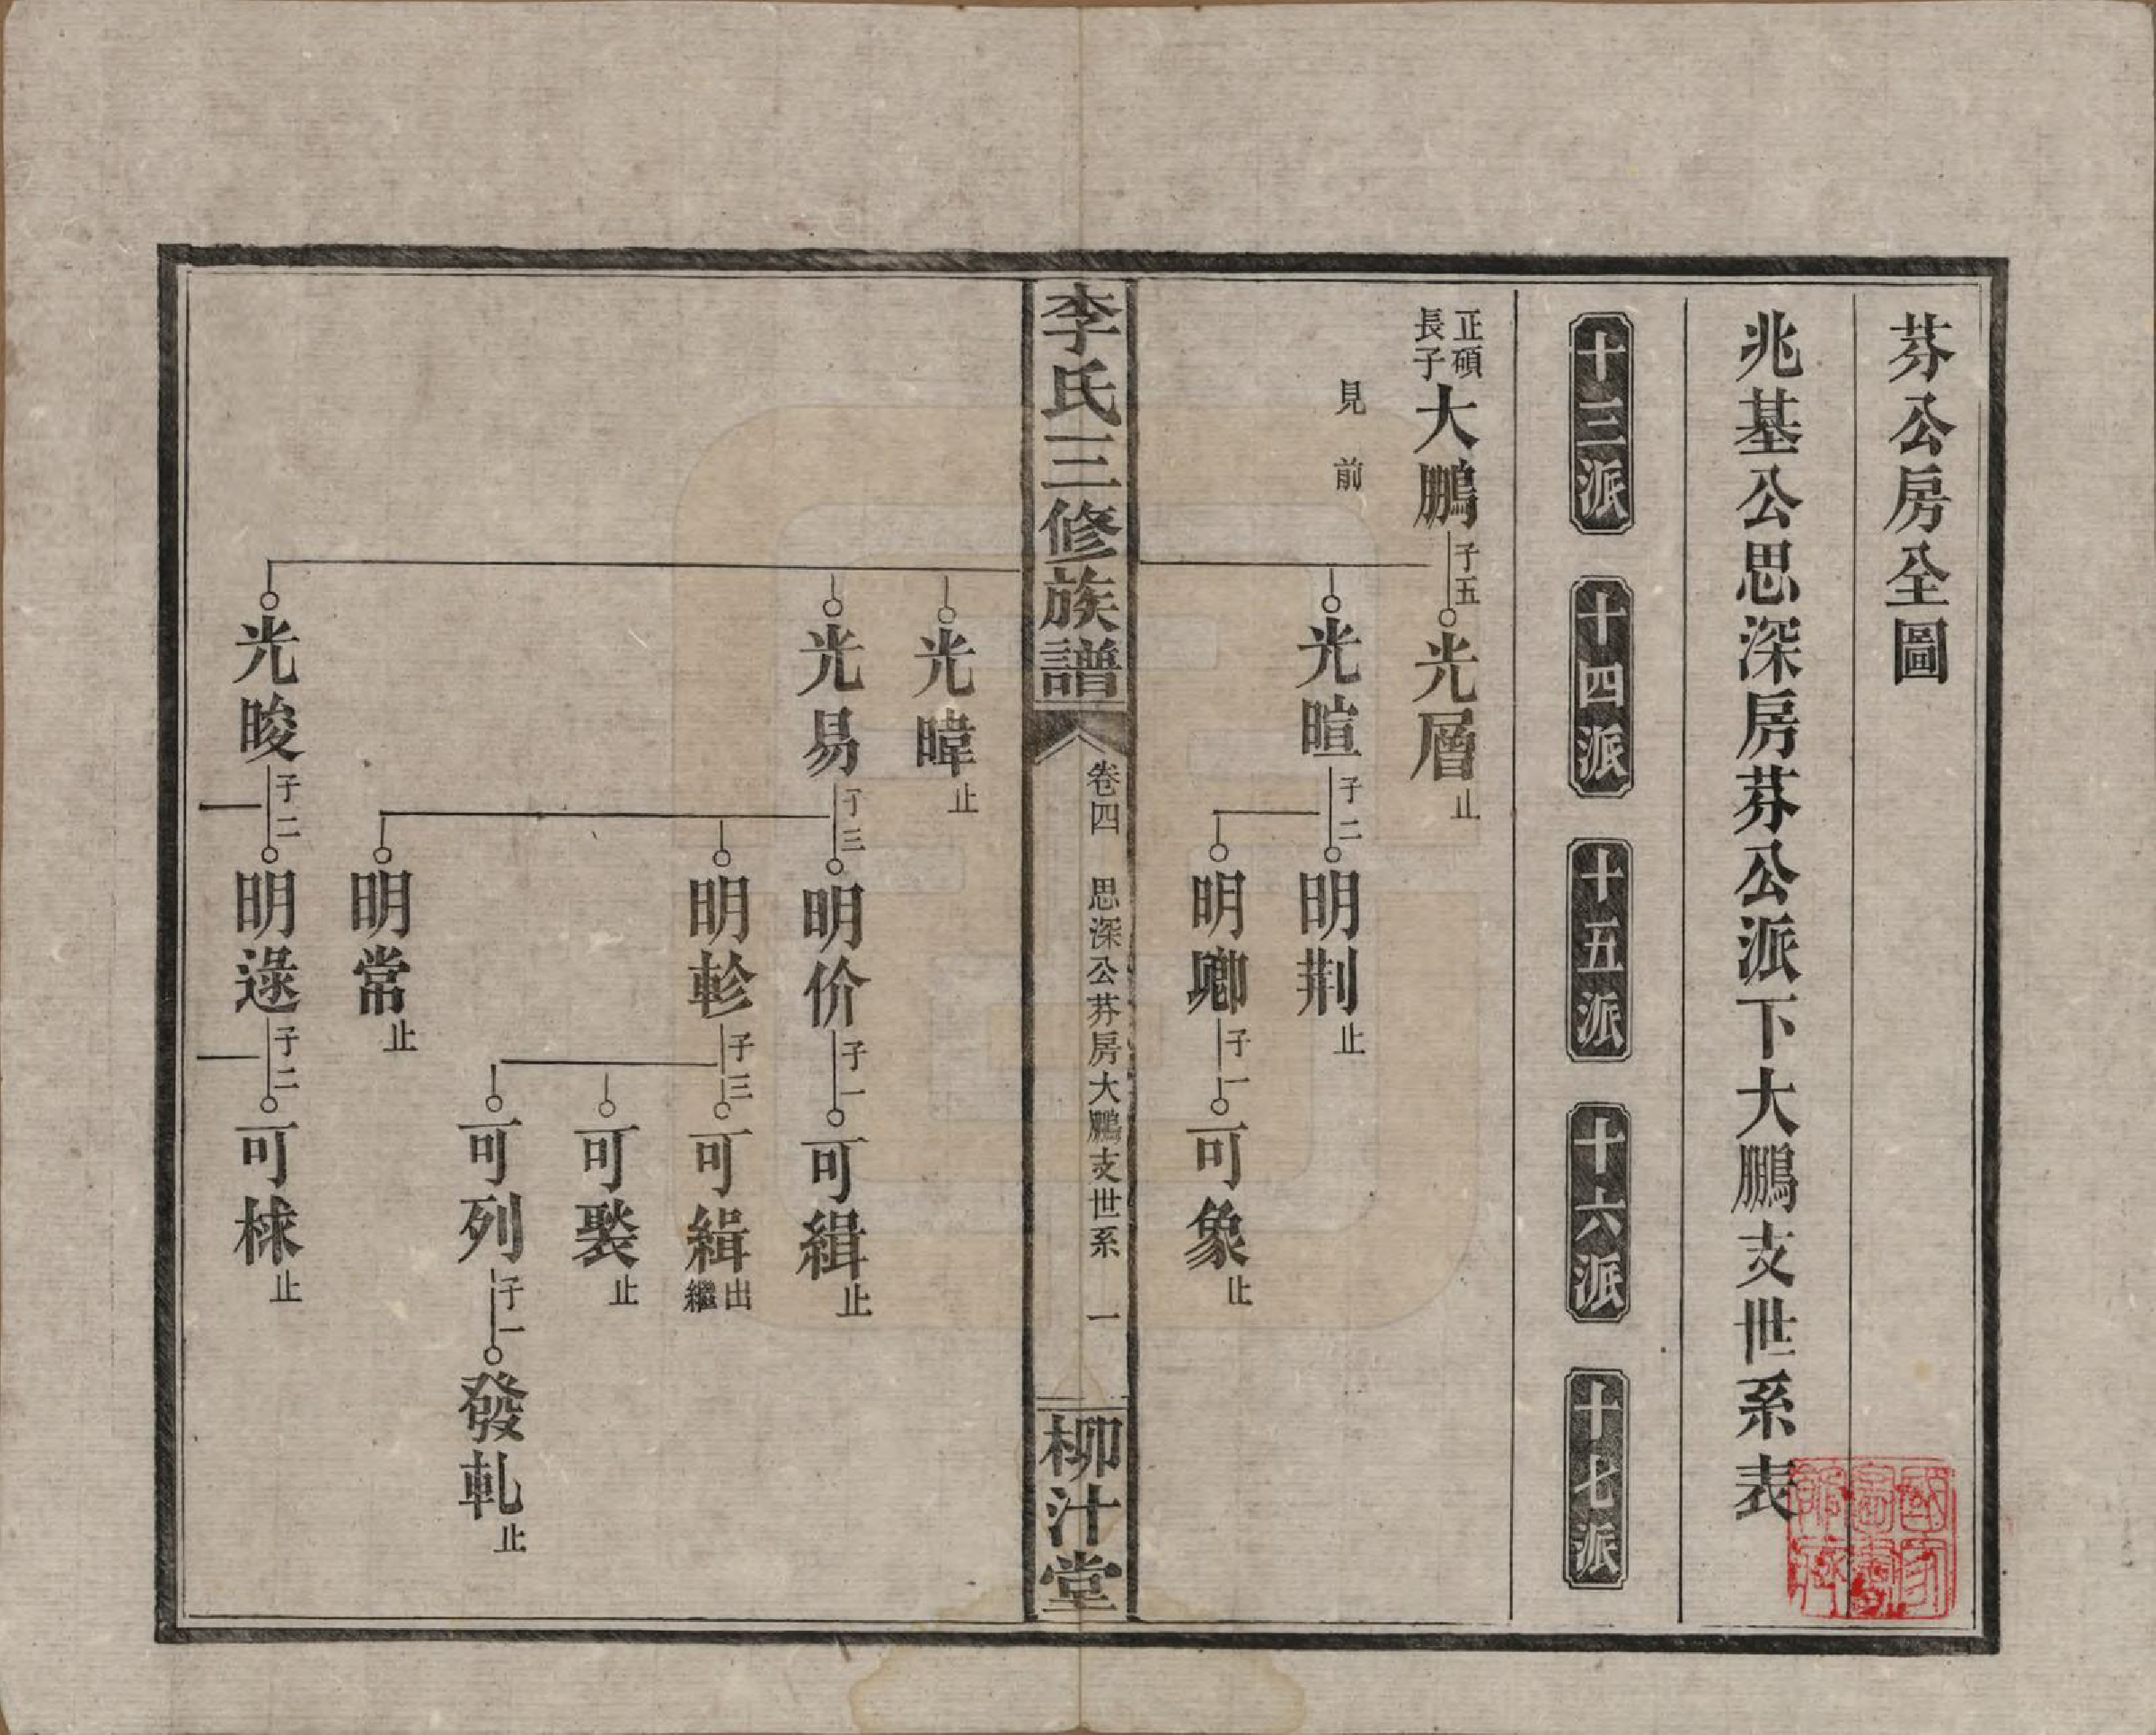 芥公房全圖
兆基公思深房芥公派下大鵬支世系表
十三派 十四派 十五派 十六派 十七派
正碩長子 大鵬 子五 光層 止
見前
光暄 子二 明荆 止
明卿 子一 可象 止
李氏三修族譜 卷四 思深公芥房大鵬支世系 一 柳汁堂
光暐 止
光易 子三 明价 子一 可緝 止
明軫 子三 可緝 出繼
可褧 止
可列 子一 發軋 止
明常 止
光晙 子二 明逯 子二 可梂 止